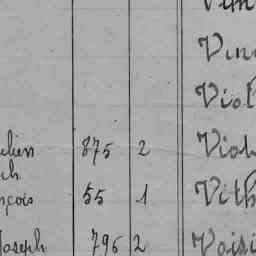 Vin
Viol
lien 875 2 Viol
ph
nçois 55 1 Vith
Joseph 796 2 Voisi